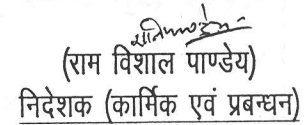 (राम विशाल पाण्डेय)
निदेशक (कार्मिक एवं प्रबन्धन)